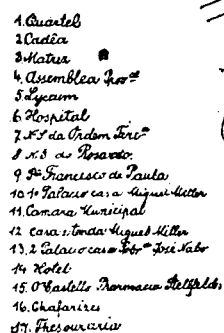 1. Quartel
2. Cadêa
3. Matriz
4. Assemblea Provᵃˡ
5. Lyceum
6. Hospital
7. N.S da Ordem Tercᵃ
8 N.S do Rosario.
9 Sº Francisco de Paula
10. 1º Palacio casa Miguel Müller
11. Camara Municipal
12 casa Miguel Müller
13. 2 Palacio casa José Nabo
14 Hotel
15. O Castello Pharmacia Stelfeld
16. Chafarizes
17. Thesouraria